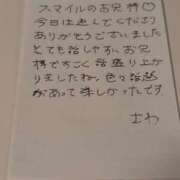 スマイルのお兄様♡
今日は返してくださり
ありがとうございました
とても話しやすいお兄
様ですごく話盛り上が
りましたね。色々話題
があって楽しかったです
さわ